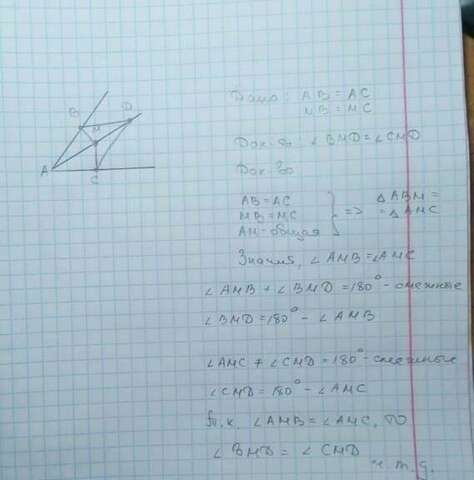 B D
M
A C
Дано: AB = AC
MB = MC
Док-ть: ∠BMD = ∠CMD
Док-во
AB = AC
MB = MC
AM - общая
} => △ABM =
= △AMC
Значит, ∠AMB = ∠AMC
∠AMB + ∠BMD = 180° - смежные
∠BMD = 180° - ∠AMB
∠AMC + ∠CMD = 180° - смежные
∠CMD = 180° - ∠AMC
т.к. ∠AMB = ∠AMC, то
∠BMD = ∠CMD
ч.т.д.